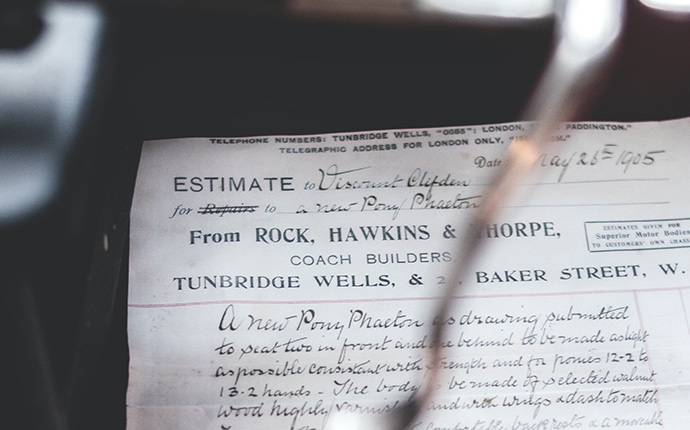 TELEPHONE NUMBERS: TUNBRIDGE WELLS, "0085"; LONDON, PADDINGTON."
TELEGRAPHIC ADDRESS FOR LONDON ONLY,
Date May 26th 1905
ESTIMATE to Viscount Clifden
for Repairs to a new Pony Phaeton
From ROCK, HAWKINS & THORPE,
COACH BUILDERS,
TUNBRIDGE WELLS, & 2 , BAKER STREET, W.
ESTIMATES GIVEN FOR
Superior Motor Bodies
TO CUSTOMERS' OWN CHASSIS
A new Pony Phaeton as drawing submitted
to seat two in front and one behind to be made as light
as possible consistant with strength and for ponies 12-2 to
13-2 hands - The body to be made of selected walnut
wood highly varnished and with wings & dash to match
comfortable back rests & a moveable